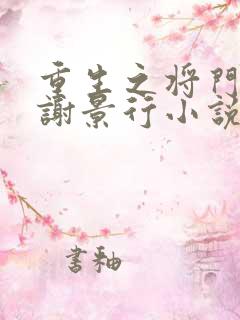 重生之将門
謝景行小説
書釉